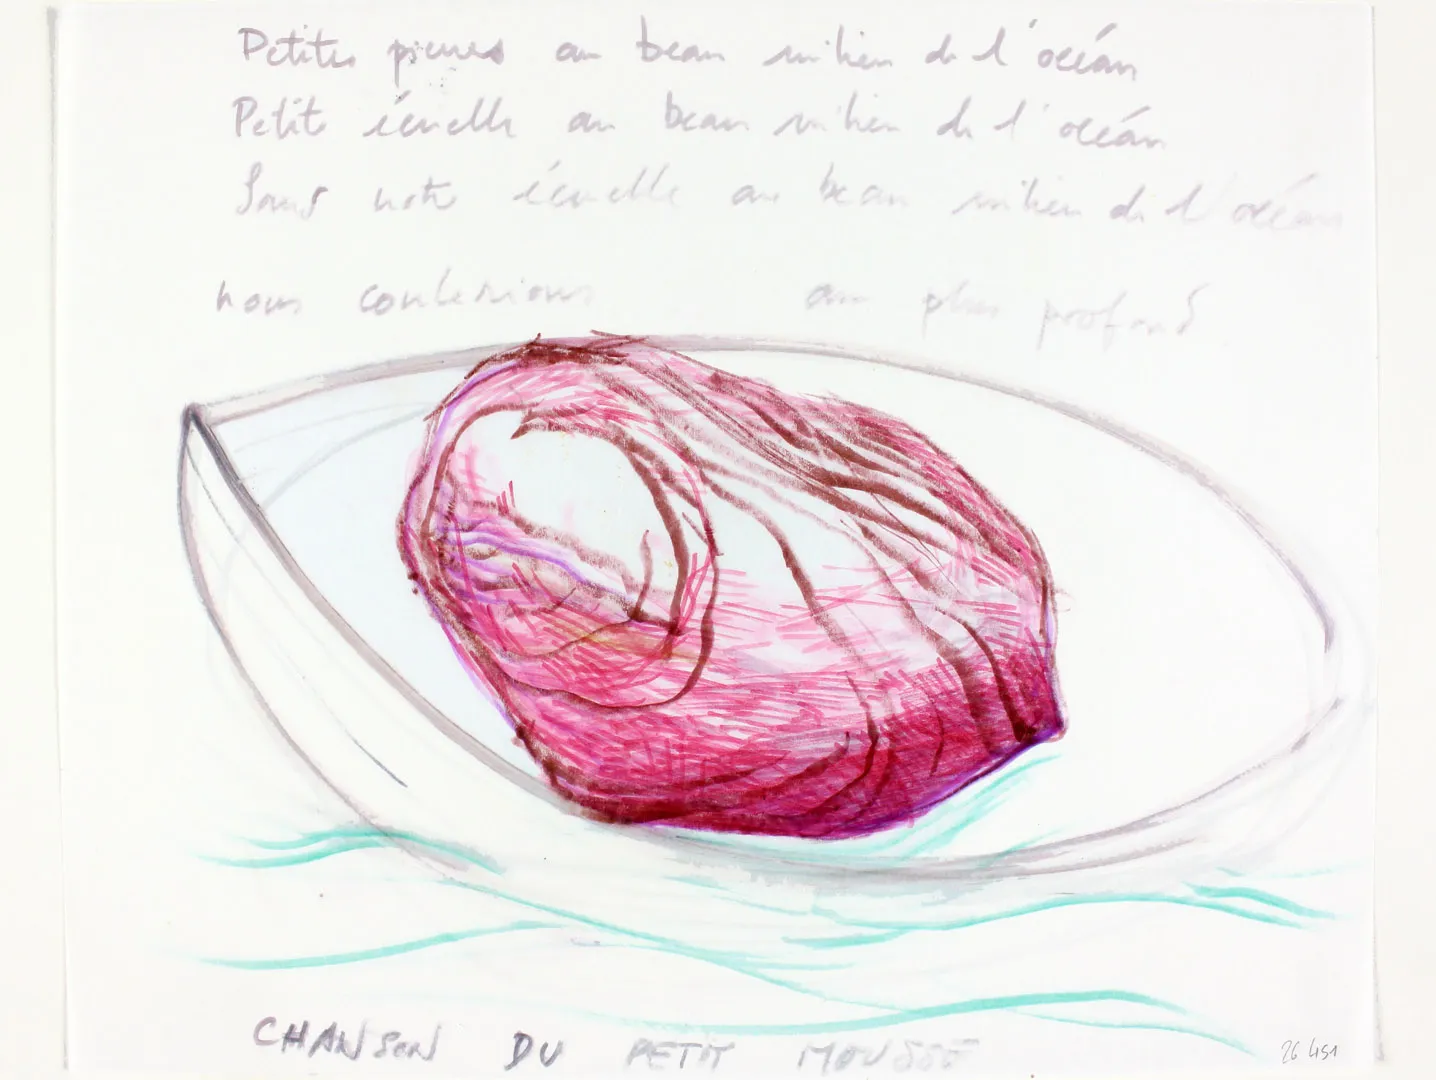 Petites pierres au beau milien de l'océan
Petite écuelle au beau milieu de l'océan
Sans note écuelle au beau milieu de l'océan
nous coulerions au plus profond
CHANSON DU PETIT MOUSSE
26 451